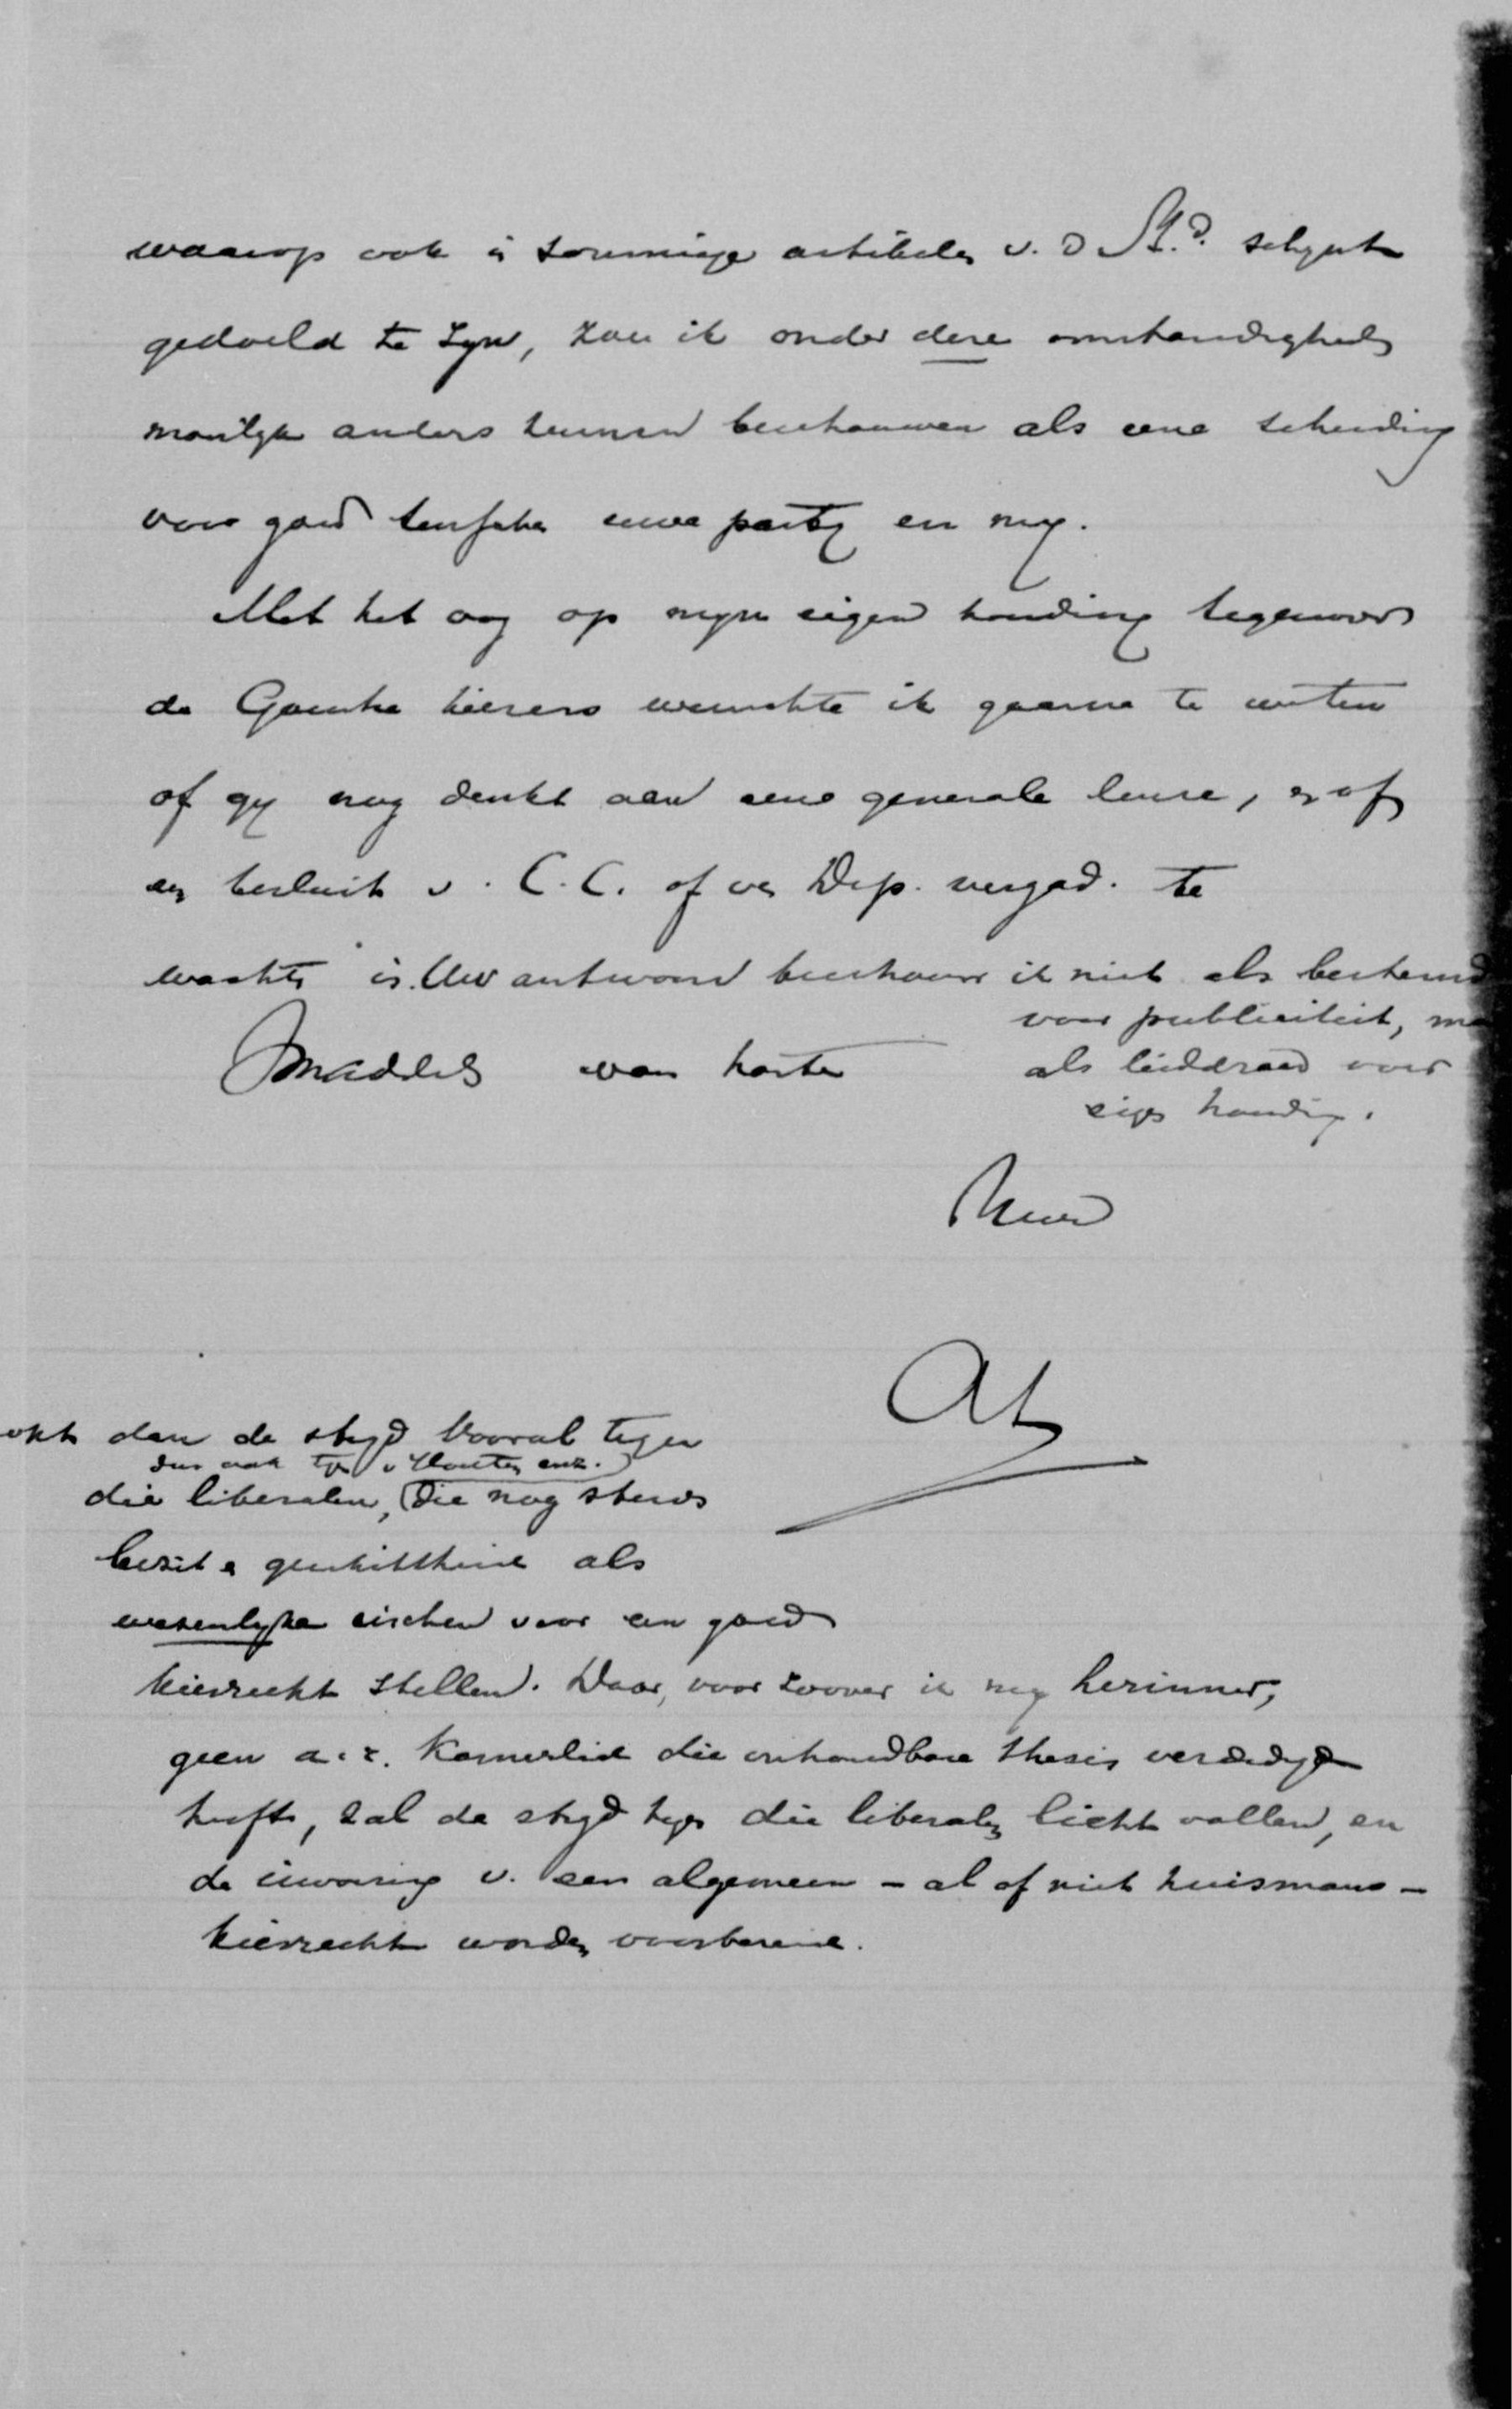 waarop ook in sommige artikelen v. d St.d schynt
gedoeld te zyn, zou ik onder deze omstandigheden
moeilyk anders kunnen beschouwen als eene scheiding
voor goed tusschen uwe party en my.
Met het oog op myn eigen houding tegenover
de Goudsche kiezers wenschte ik gaarne te weten
of gy nog denkt aan eene generale leuze, en of
een besluit v. C.C. of een Dep. vergad. te
wachten is. Uw antwoord beschouw ik niet als bestemd
voor publiciteit, ma
als leiddraad voor
eigen houding.
van harte
AL
dan de stryd vooral tegen
dus ook tegen v Houten enz.
die liberalen, (die nog steeds
bezit & geschiktheid als
wezenlyke eischen voor een goed
kiesrecht stellen. Daar, voor zoover ik my herinner,
geen a.r. Kamerlid die onhoudbare thesis verdedigd
heeft, zal de stryd tegen die liberalen licht vallen, en
de invoering v. een algemeen - al of niet huismans -
kiesrecht worden voorbereid.